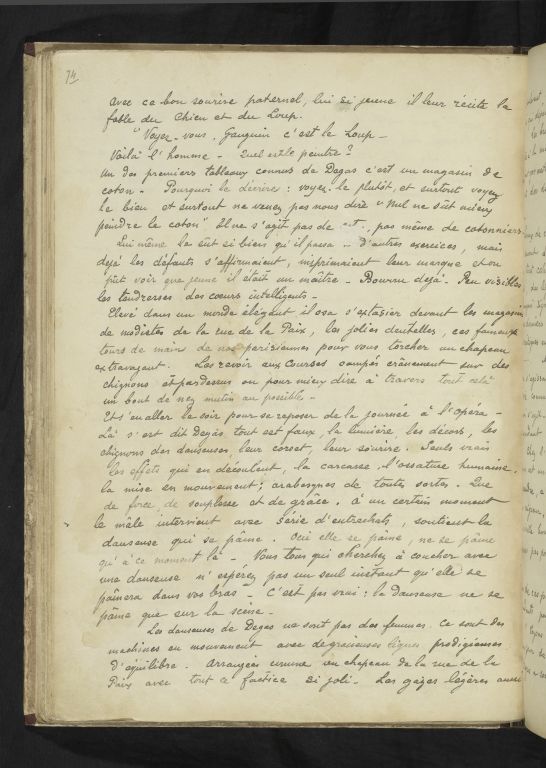 74
avec ce bon sourire paternel, lui si jeune il leur récite la
fable du Chien et du Loup.
"Voyez-vous, Gauguin c'est le Loup -
Voilà l'homme - Quel est le peintre?
Un des premiers tableaux connus de Degas c'est un magasin de
coton - Pourquoi le décrire: voyez-le plutôt, et surtout voyez
le bien et surtout ne venez pas nous dire "Nul ne sût mieux
peindre le coton". Il ne s'agit pas de pas même de cotonniers
Lui même le sût si bien qu'il passa - D'autres exercices, mais
déjà les défauts s'affirmaient, imprimaient leur marque et on
pût voir que jeune il était un maître - Bourru déjà - Peu visibles
les tendresses des cœurs intelligents -
Elevé dans un monde élégant il osa s'extasier devant les magasins
de modistes de la rue de la Paix, les jolies dentelles, ces fameux
tours de mains de nos parisiennes pour vous torcher un chapeau
extravagant. Les revoir aux Courses campés crânement sur des
chignons et pardessus ou pour mieux dire à travers tout cela
un bout de nez mutin au possible -
Et s'en aller le soir pour se reposer de la journée à l'opéra -
Là s'est dit Degas tout est faux, la lumière, les décors, les
chignons des danseuses, leur corset, leur sourire. Seuls vrais
les effets qui en découlent, la carcasse, l'ossature humaine,
la mise en mouvement; arabesques de toutes sortes. Que
de force, de souplesse et de grâce. à un certain moment
le mâle intervient avec série d'entrechats, soutient la
danseuse qui se pâme. Oui elle se pâme, ne se pâme
qu'à ce moment là - Vous tous qui cherchez à coucher avec
une danseuse n'espérez pas un seul instant qu'elle se
pâmera dans vos bras - C'est pas vrai: la danseuse ne se
pâme que sur la scène -
Les danseuses de Degas ne sont pas des femmes. Ce sont des
machines en mouvement avec de gracieuses lignes prodigieuses
d'équilibre. Arrangées comme un chapeau de la rue de la
Paix avec tout ce factice si joli - Les gazes légères aussi